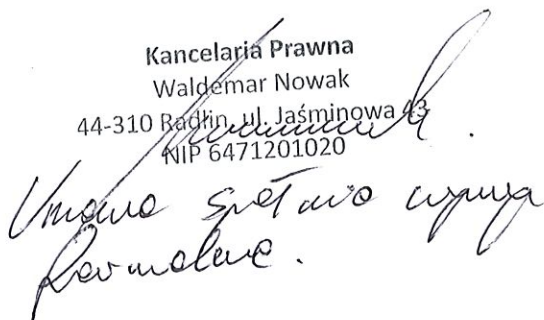 Kancelaria Prawna
Waldemar Nowak
44-310 Radlin, ul. Jaśminowa 43
NIP 6471201020
Umowa spełnia wymogi
formalne.